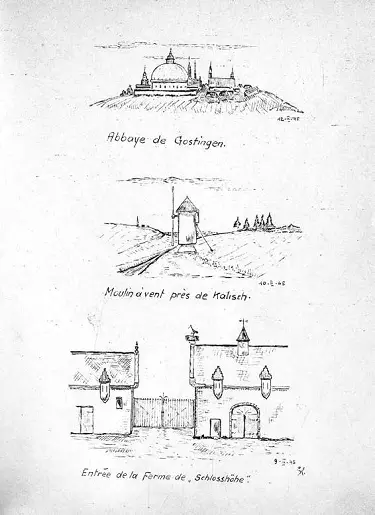 Abbaye de Gostingen.
Moulin à vent près de Kalisch.
Entrée de la Ferme de „Schlosshöhe".